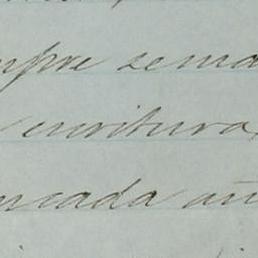 mpre sema
escritura,
ncada añ